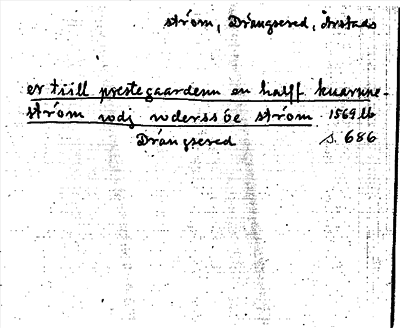 ström, Drängsered, Årstads
er tiill prestegaardenn en halff kuarnne-
ström vdj vderssöe ström 1569 lb
Drängsered s. 686